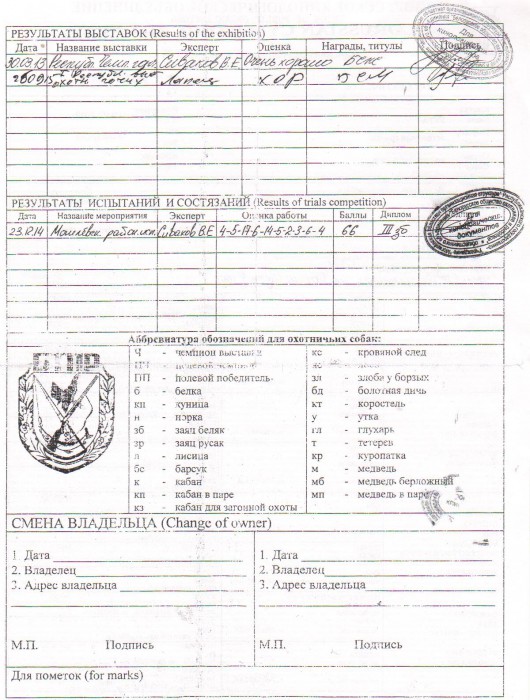 РЕЗУЛЬТАТЫ ВЫСТАВОК (Results of the exhibition)
Дата Название выставки Эксперт Оценка Награды, титулы Подпись
30.03.13 Сиваков В.Е Очень хорошо
Лапец ХОР
РЕЗУЛЬТАТЫ ИСПЫТАНИЙ И СОСТЯЗАНИЙ (Results of trials competition)
Дата Название мероприятия Эксперт Оценка работы Баллы Диплом
Сиваков В.Е 4-5-17-6-14-5-2-3-6-4 66 III зб
Аббревиатура обозначений для охотничьих собак:
Ч - чемпион выставки
ПЧ - полевой чемпион
ПП - полевой победитель
б - белка
кн - куница
н - норка
зб - заяц беляк
зр - заяц русак
л - лисица
бс - барсук
к - кабан
кп - кабан в паре
кз - кабан для загонной охоты
кс - кровяной след
зл - злоба у борзых
бд - болотная дичь
кт - коростель
у - утка
гл - глухарь
т - тетерев
кр - куропатка
м - медведь
мб - медведь берложный
мп - медведь в паре
СМЕНА ВЛАДЕЛЬЦА (Change of owner)
1 Дата
2. Владелец
3. Адрес владельца
М.П. Подпись
1. Дата
2. Владелец
3. Адрес владельца
М.П. Подпись
Для пометок (for marks)